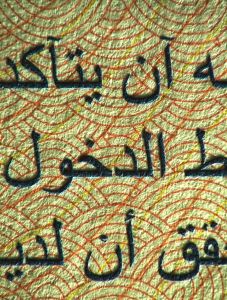 ـه أن يتأكد
ط الدخول
قق أن لديـ